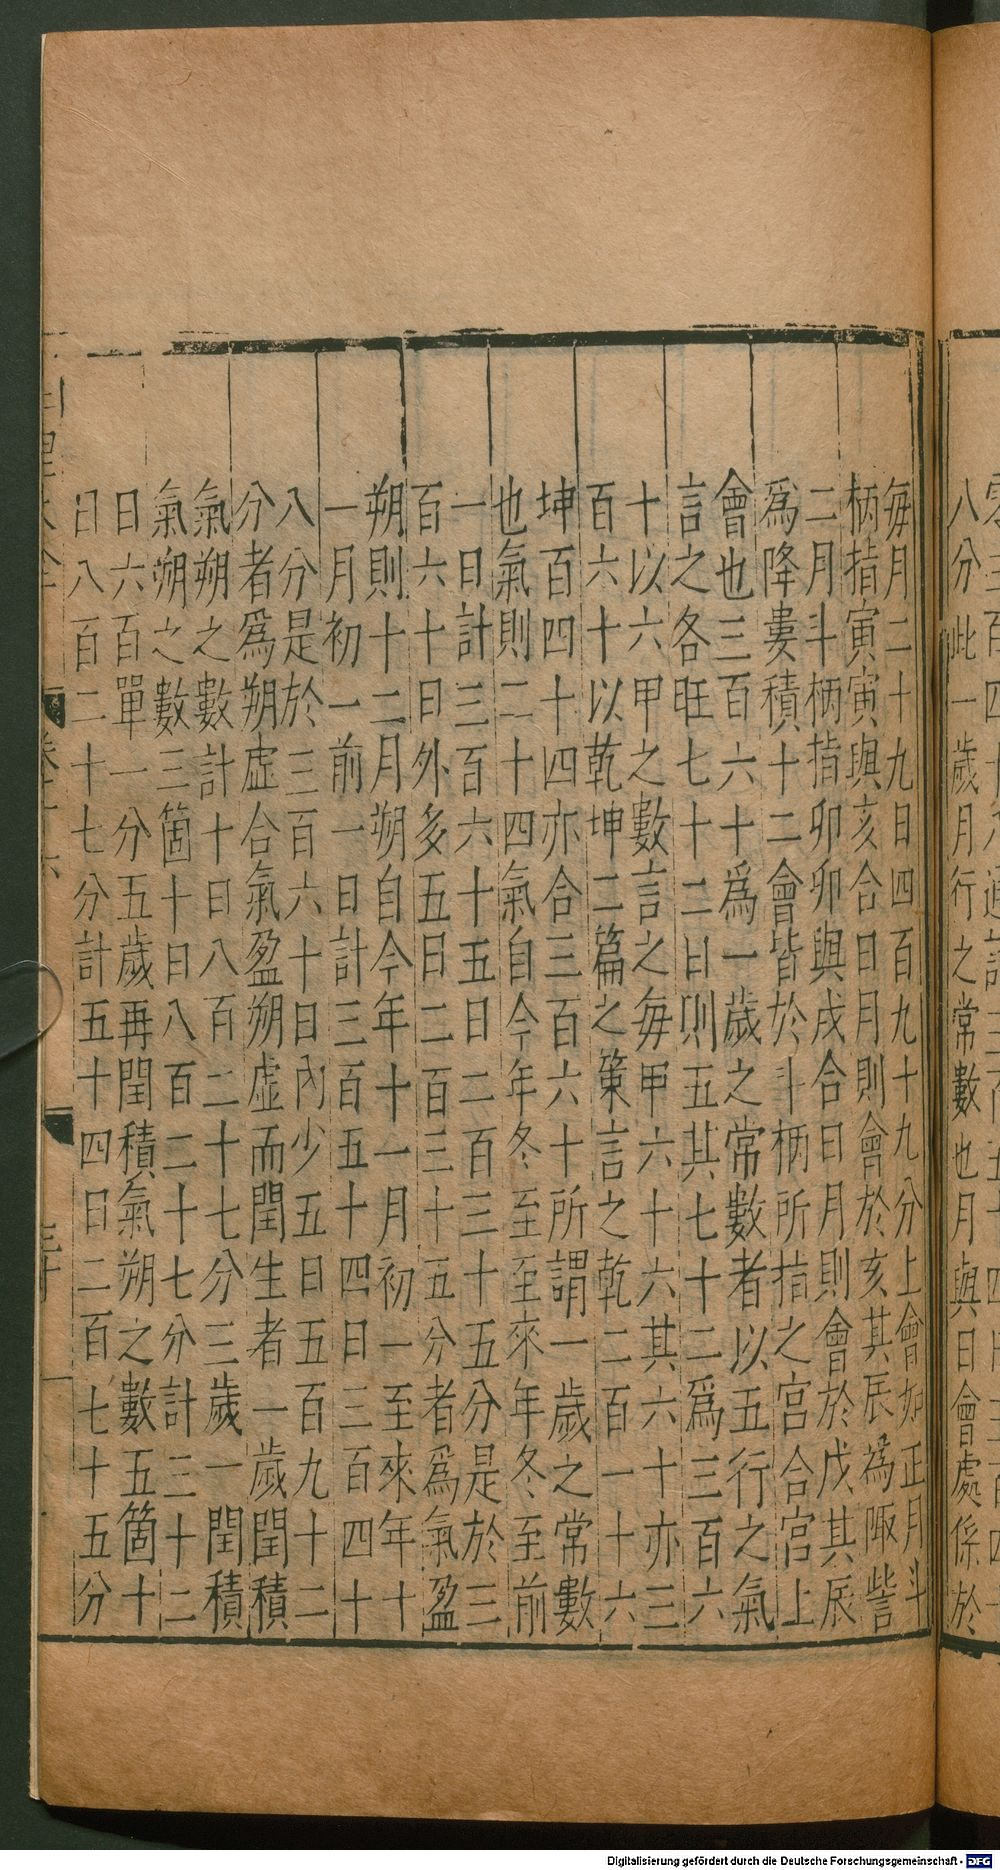 零三百四十八通計三百五十四日三百四十
八分此一歲月行之常數也月與日會處係於
每月二十九日四百九十九分上會如正月斗
柄指寅寅與亥合日月則會於亥其辰為陬訾
二月斗柄指卯卯與戌合日月則會於戌其辰
為降婁積十二會皆於斗柄所指之宮合宮上
會也三百六十為一歲之常數者以五行之氣
言之各旺七十二日則五其七十二為三百六
十以六甲之數言之每甲六十六其六十亦三
百六十以乾坤二篇之策言之乾二百一十六
坤百四十四亦合三百六十所謂一歲之常數
也氣則二十四氣自今年冬至至來年冬至前
一日計三百六十五日二百三十五分是於三
百六十日外多五日二百三十五分者為氣盈
朔則十二月朔自今年十一月初一至來年十
一月初一前一日計三百五十四日三百四十
八分是於三百六十日內少五日五百九十二
分者為朔虛合氣盈朔虛而閏生者一歲閏積
氣朔之數計十日八百二十七分三歲一閏積
氣朔之數三箇十日八百二十七分計三十二
日六百單一分五歲再閏積氣朔之數五箇十
日八百二十七分計五十四日二百七十五分
卷十六
Digitalisierung gefördert durch die Deutsche Forschungsgemeinschaft - DFG